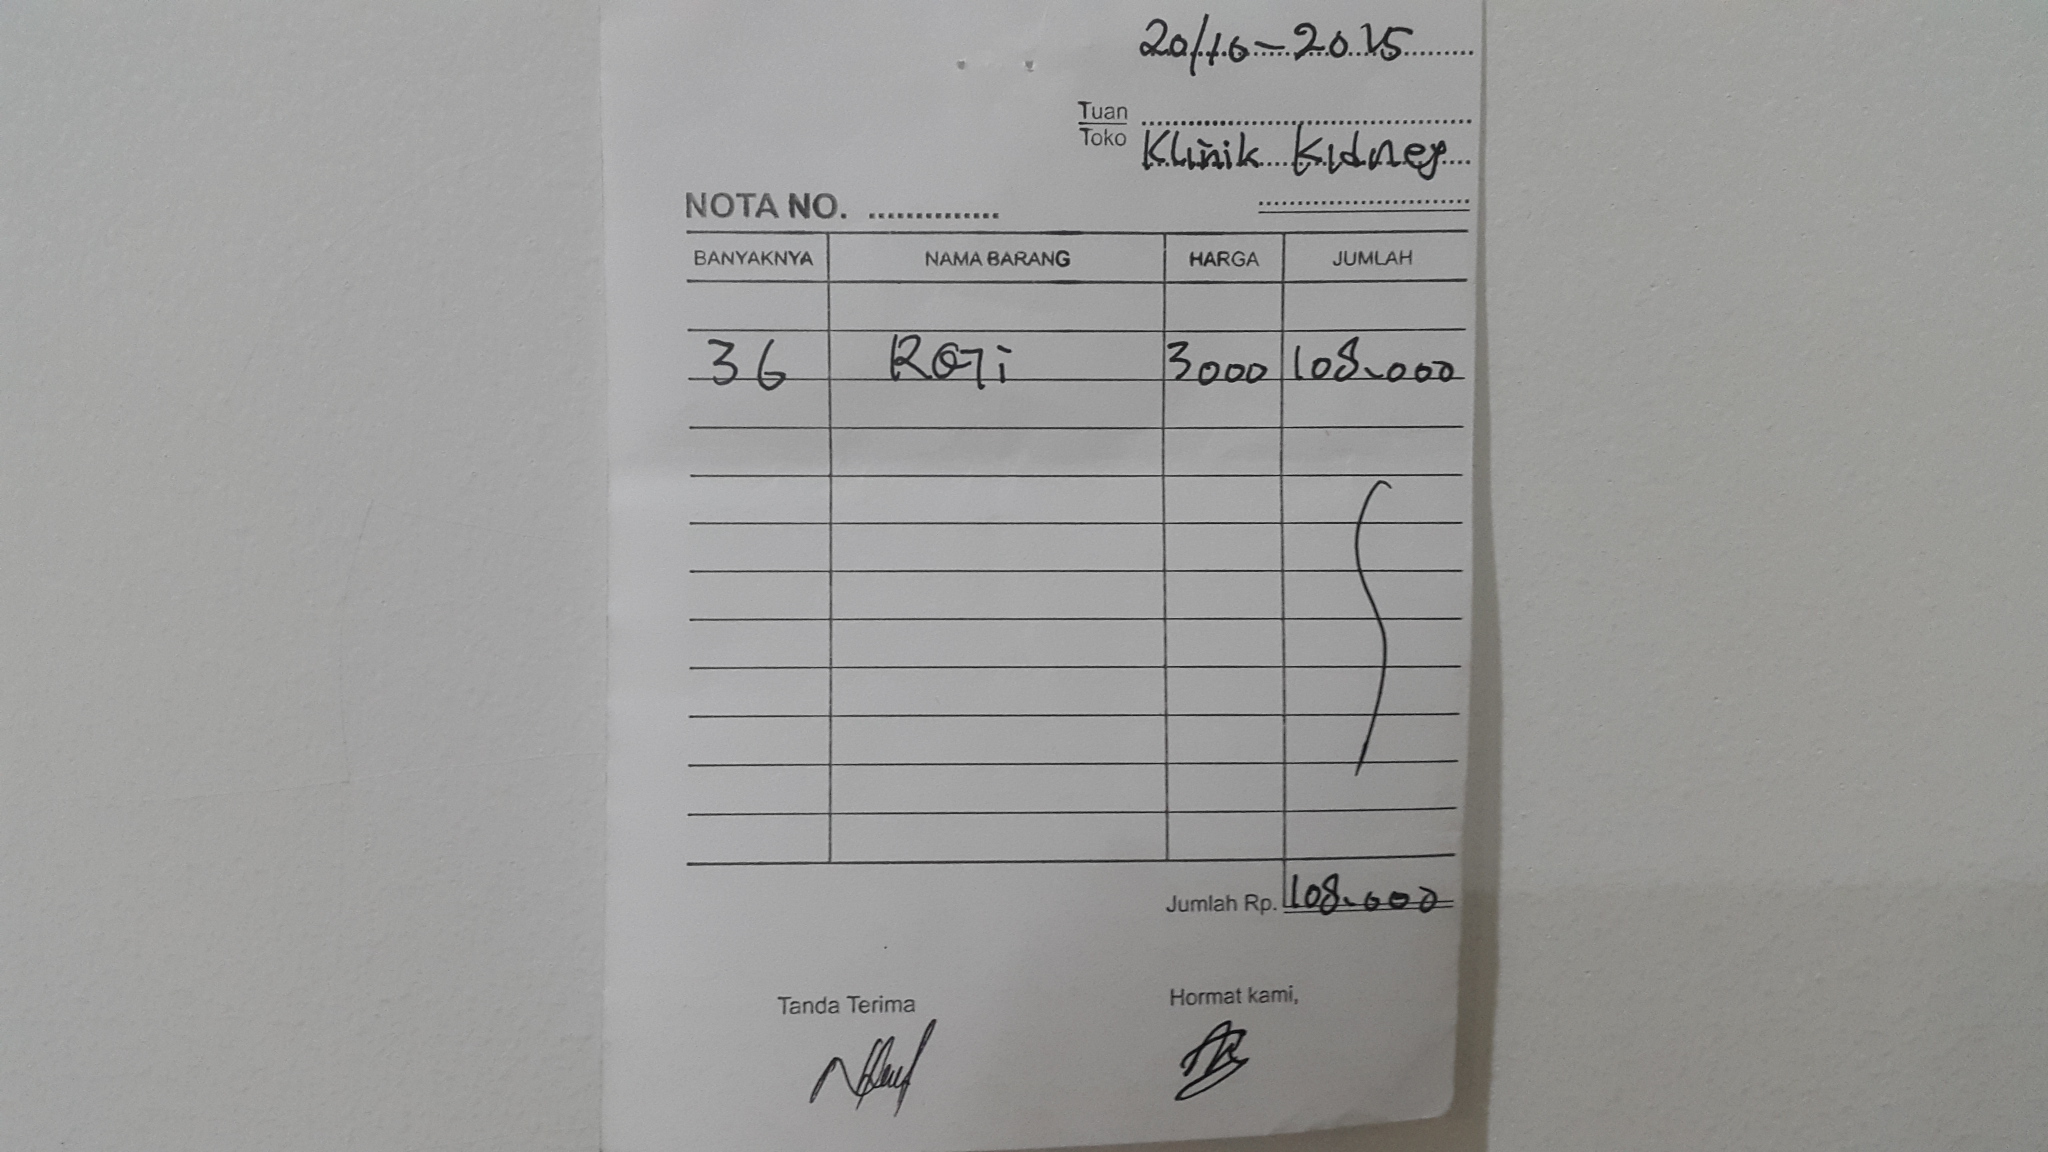 20/10-2015
Tuan
Toko Klinik Kidney
NOTA NO. ...............
BANYAKNYA NAMA BARANG HARGA JUMLAH
36 ROTi 3000 108.000
Jumlah Rp. 108.000
Tanda Terima Hormat kami,